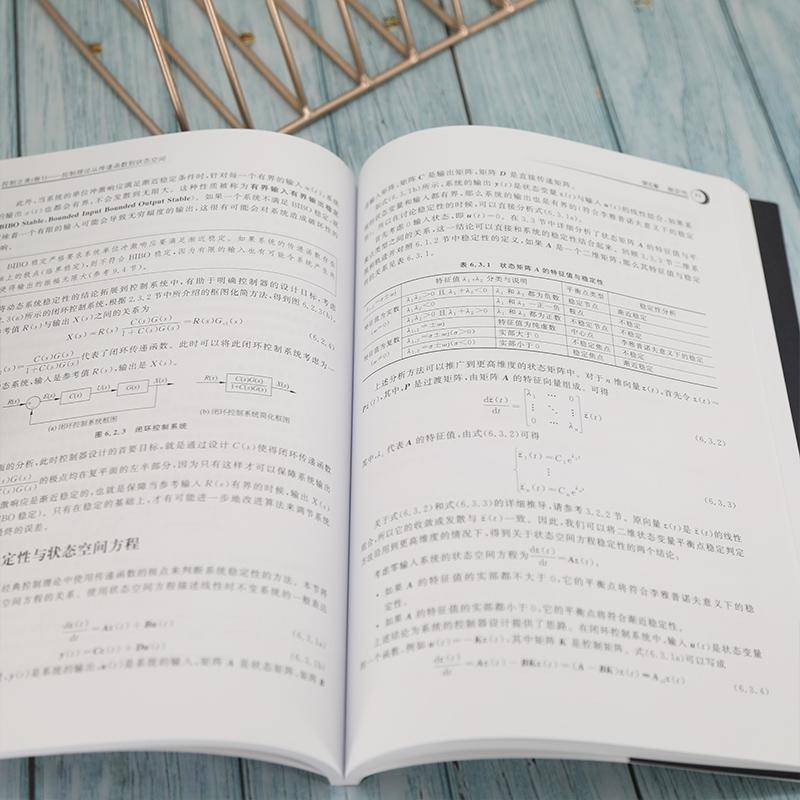 控制之美(卷1)——控制理论从传递函数到状态空间
此外,当系统的单位冲激响应满足渐近稳定条件时,针对每一个有界的输入u(t),系统
的输出x(t)也都会有界,不会发散到无限大。这种性质被称为有界输入有界输出稳定
(BIBO Stable,Bounded Input Bounded Output Stable)。如果一个系统不满足BIBO稳定,就
意味着一个有限的输入可能会导致无穷幅度的输出,这很有可能会对系统造成破坏性的
影响。
BIBO稳定严格要求系统单位冲激响应要满足渐近稳定。如果系统的传递函数存
使得输出的振幅无限大(参考9.4节)。
将动态系统稳定性的结论拓展到控制系统中,有助于明确控制器的设计目标。考虑
2.3(a)所示的闭环控制系统,根据2.3.2节中所介绍的框图化简方法,得到图6.2.3(b),
考值R(s)与输出X(s)之间的关系为
X(s)=R(s) C(s)G(s)/1+C(s)G(s) =R(s)Gcl(s)
(6.2.4)
C(s)G(s)/1+C(s)G(s) 代表了闭环传递函数。此时可以将此闭环控制系统考虑为一
态系统,输入是参考值R(s),输出是X(s)。
R(s) E(s) C(s) U(s) G(s) X(s)
R(s) C(s)G(s)/1+C(s)G(s) X(s)
(a) 闭环控制系统框图
(b) 闭环控制系统简化框图
图6.2.3 闭环控制系统
面的分析,此时控制器设计的首要目标,就是通过设计C(s)使得闭环传递函数
的极点均在复平面的左半部分,因为只有这样才可以保障系统输出
激响应是渐近稳定的,也就是保障当参考输入R(s)有界的时候,输出X(s)
BIBO稳定)。只有在稳定的基础上,才有可能进一步地改进算法来调节系统
最终的误差。
定性与状态空间方程
经典控制理论中使用传递函数的极点来判断系统稳定性的方法。本节将
空间方程的关系。使用状态空间方程描述线性时不变系统的一般表达
dz(t)/dt=Az(t)+Bu(t)
(6.3.1a)
y(t)=Cz(t)+Du(t)
(6.3.1b)
,y(t)是系统的输出,u(t)是系统的输入,矩阵A是状态矩阵,矩阵B
是输入矩阵,矩阵C是输出矩阵,矩阵D是直接传递矩阵。
如果系统的状态变量和输入都有界,那么系统的输出也是有界的(符合李雅普诺夫意义下的稳
首先考虑0输入状态,即u(t)=0。在3.3节中详细分析了状态矩阵A的特征值与平
衡点类型之间的关系,这一结论可以直接和系统的稳定性结合起来。回顾3.3.3节二维系
统相轨迹并对照6.1.2节中稳定性的定义,如果A是一个二维矩阵,那么其特征值与稳定
的关系见表6.3.1。
表6.3.1 状态矩阵A的特征值与稳定性
特征值λ1,λ2分类与说明 平衡点类型 稳定性分析
λ1和λ2都为负数 稳定节点 渐近稳定
λ1和λ2一正一负 鞍点 不稳定
λ1和λ2都为正数 不稳定节点 不稳定
特征值为纯虚数 中心点 李雅普诺夫意义下的稳定
实部大于0 不稳定焦点 不稳定
实部小于0 稳定焦点 渐近稳定
上述分析方法可以推广到更高维度的状态矩阵中。对于n维向量z(t),首先令z(t)=
Pz̄(t),其中,P是过渡矩阵,由矩阵A的特征向量组成。可得
(6.3.2)
其中,λi代表A的特征值,由式(6.3.2)可得
(6.3.3)
关于式(6.3.2)和式(6.3.3)的详细推导,请参考3.2.2节。原向量z(t)是z̄(t)的线性
组合,所以它的收敛或发散与z̄(t)一致。因此,我们可以将二维状态变量平衡点稳定判定
方法沿用到更高维度的情况下,得到关于状态空间方程稳定性的两个结论:
考虑零输入系统的状态空间方程为dz(t)/dt=Az(t),
• 如果A的特征值的实部都不大于0,它的平衡点将符合李雅普诺夫意义下的稳
定性。
• 如果A的特征值的实部都小于0,它的平衡点将符合渐近稳定性。
上述结论为系统的控制器设计提供了思路。在闭环控制系统中,输入u(t)是状态变量
的一个函数,例如u(t)=-Kz(t),其中矩阵K是控制矩阵。式(6.3.1a)可以写成
dz(t)/dt=Az(t)-BKz(t)=(A-BK)z(t)=Aclz(t)
(6.3.4)